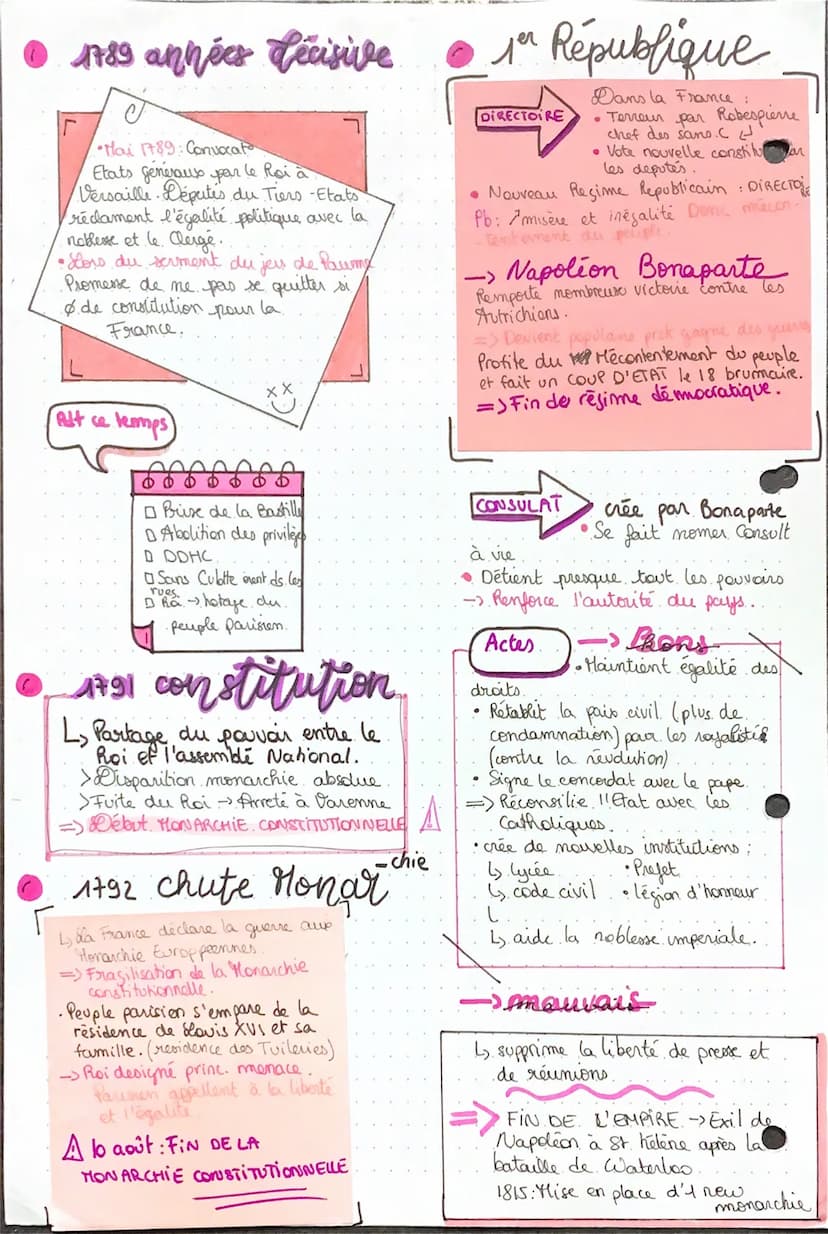 1789 années décisive
• Mai 1789 : Convocat°
Etats généraux par le Roi à
Versaille. Députés du Tiers-Etats
réclament l'égalité politique avec la
noblesse et le Clergé.
• Lors du serment du jeu de Paume
Promesse de ne pas se quitter si
Ø de constitution pour la
France.
Pdt ce temps
Prise de la Bastille
Abolition des privilèges
DDHC
Sans Culotte ds les
rues
Roi → hotage du
peuple Parisien.
1791 constitution
↳ Partage du pouvoir entre le
Roi et l'assemblé National.
> Disparition monarchie absolue
> Fuite du Roi → Arreté à Varenne
=> Début MONARCHIE CONSTITUTIONNELLE
1792 chute Monar-chie
↳ La France déclare la guerre aux
Monarchie Européennes
=> Fragilisation de la Monarchie
constitutionnelle.
• Peuple parisien s'empare de la
résidence de Louis XVI et sa
famille. (residence des Tuileries)
→ Roi designé princ. menace.
Parisien appellent à la liberté
et l'égalité
10 août : FIN DE LA
MONARCHIE CONSTITUTIONNELLE
1er République
DIRECTOIRE
Dans la France :
• Terreur par Robespierre
chef des sans.C ↵
• Vote nouvelle constitu par
les députés.
• Nouveau Regime Republicain : DIRECTOIRE
Pb : ↗ misère et inégalité Donc mécon-
tentement du peuple.
→ Napoléon Bonaparte
Remporte nombreuse victoire contre les
Autrichiens.
=> Devient populaire prsk gagne des guerres
Profite du Mécontentement du peuple
et fait un COUP D'ETAT le 18 brumaire.
=> Fin de régime démocratique.
CONSULAT
crée par Bonaparte
• Se fait nomer Consult
à vie
• Détient presque tout les pouvoirs
→ Renforce l'autorité du pays..
Actes
→ Bons
• Maintient égalité des
droits
• Rétablit la paix civil (plus de
condamnation) pour les royalistes
(contre la révolution)
• Signe le concordat avec le pape
=> Réconsilie l'Etat avec les
Catholiques.
• crée de nouvelles institutions :
↳ lycée • Préfet
↳ code civil • légion d'honneur
↳ aide la noblesse imperiale.
→ mauvais
↳ supprime la liberté de presse et
de réunions
=> FIN DE L'EMPIRE → Exil de
Napoléon à St Hélène après la
bataille de Waterloo
1815 : Mise en place d'1 new
monarchie